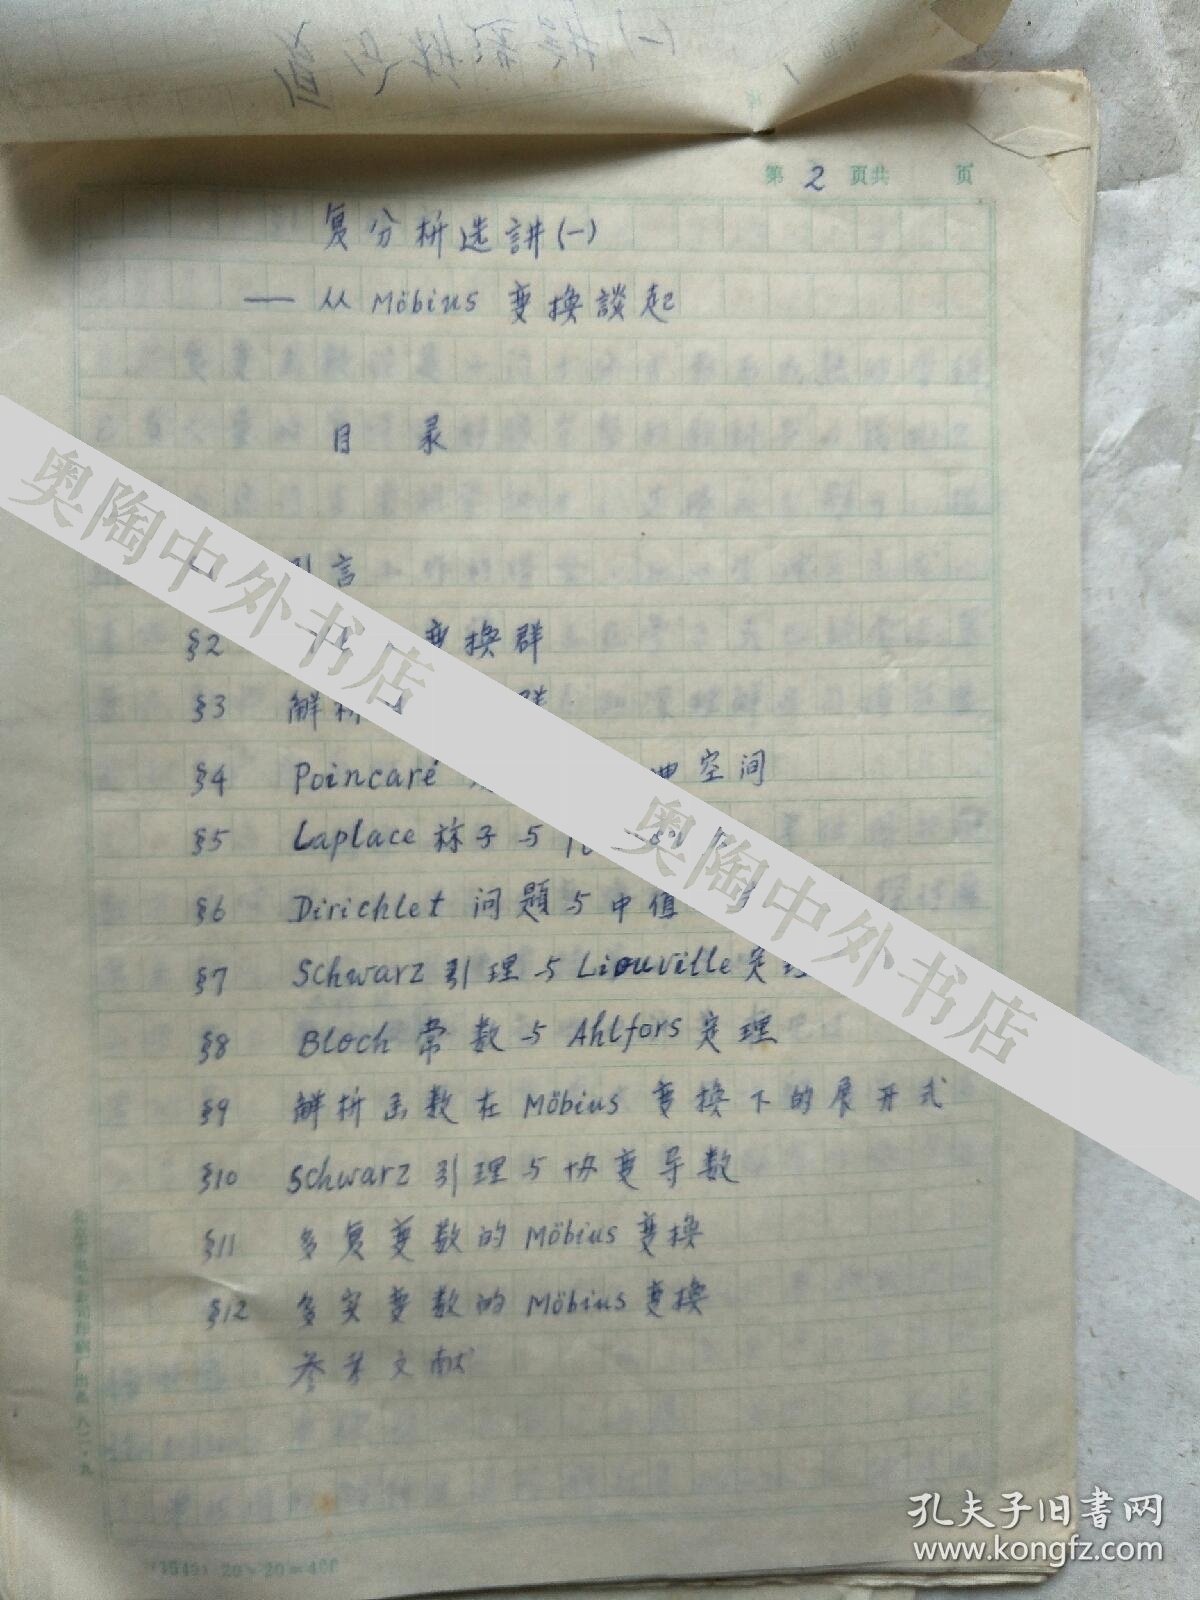 第 2 页共 页
复分析选讲(一)
— 从 Möbius 变换談起
目 录
引言
§2 变换群
§3 解析 群
§4 Poincaré 空间
§5 Laplace 祘子与
§6 Dirichlet 问題与中值
§7 Schwarz 引理与 Liouville 定理
§8 Bloch 常数与 Ahlfors 定理
§9 解析函数在 Möbius 变换下的展开式
§10 Schwarz 引理与协变导数
§11 多复变数的 Möbius 变换
§12 多实变数的 Möbius 变换
参考文献
奥陶中外书店
奥陶中外书店
20×20=400
孔夫子旧书网
www.kongfz.com